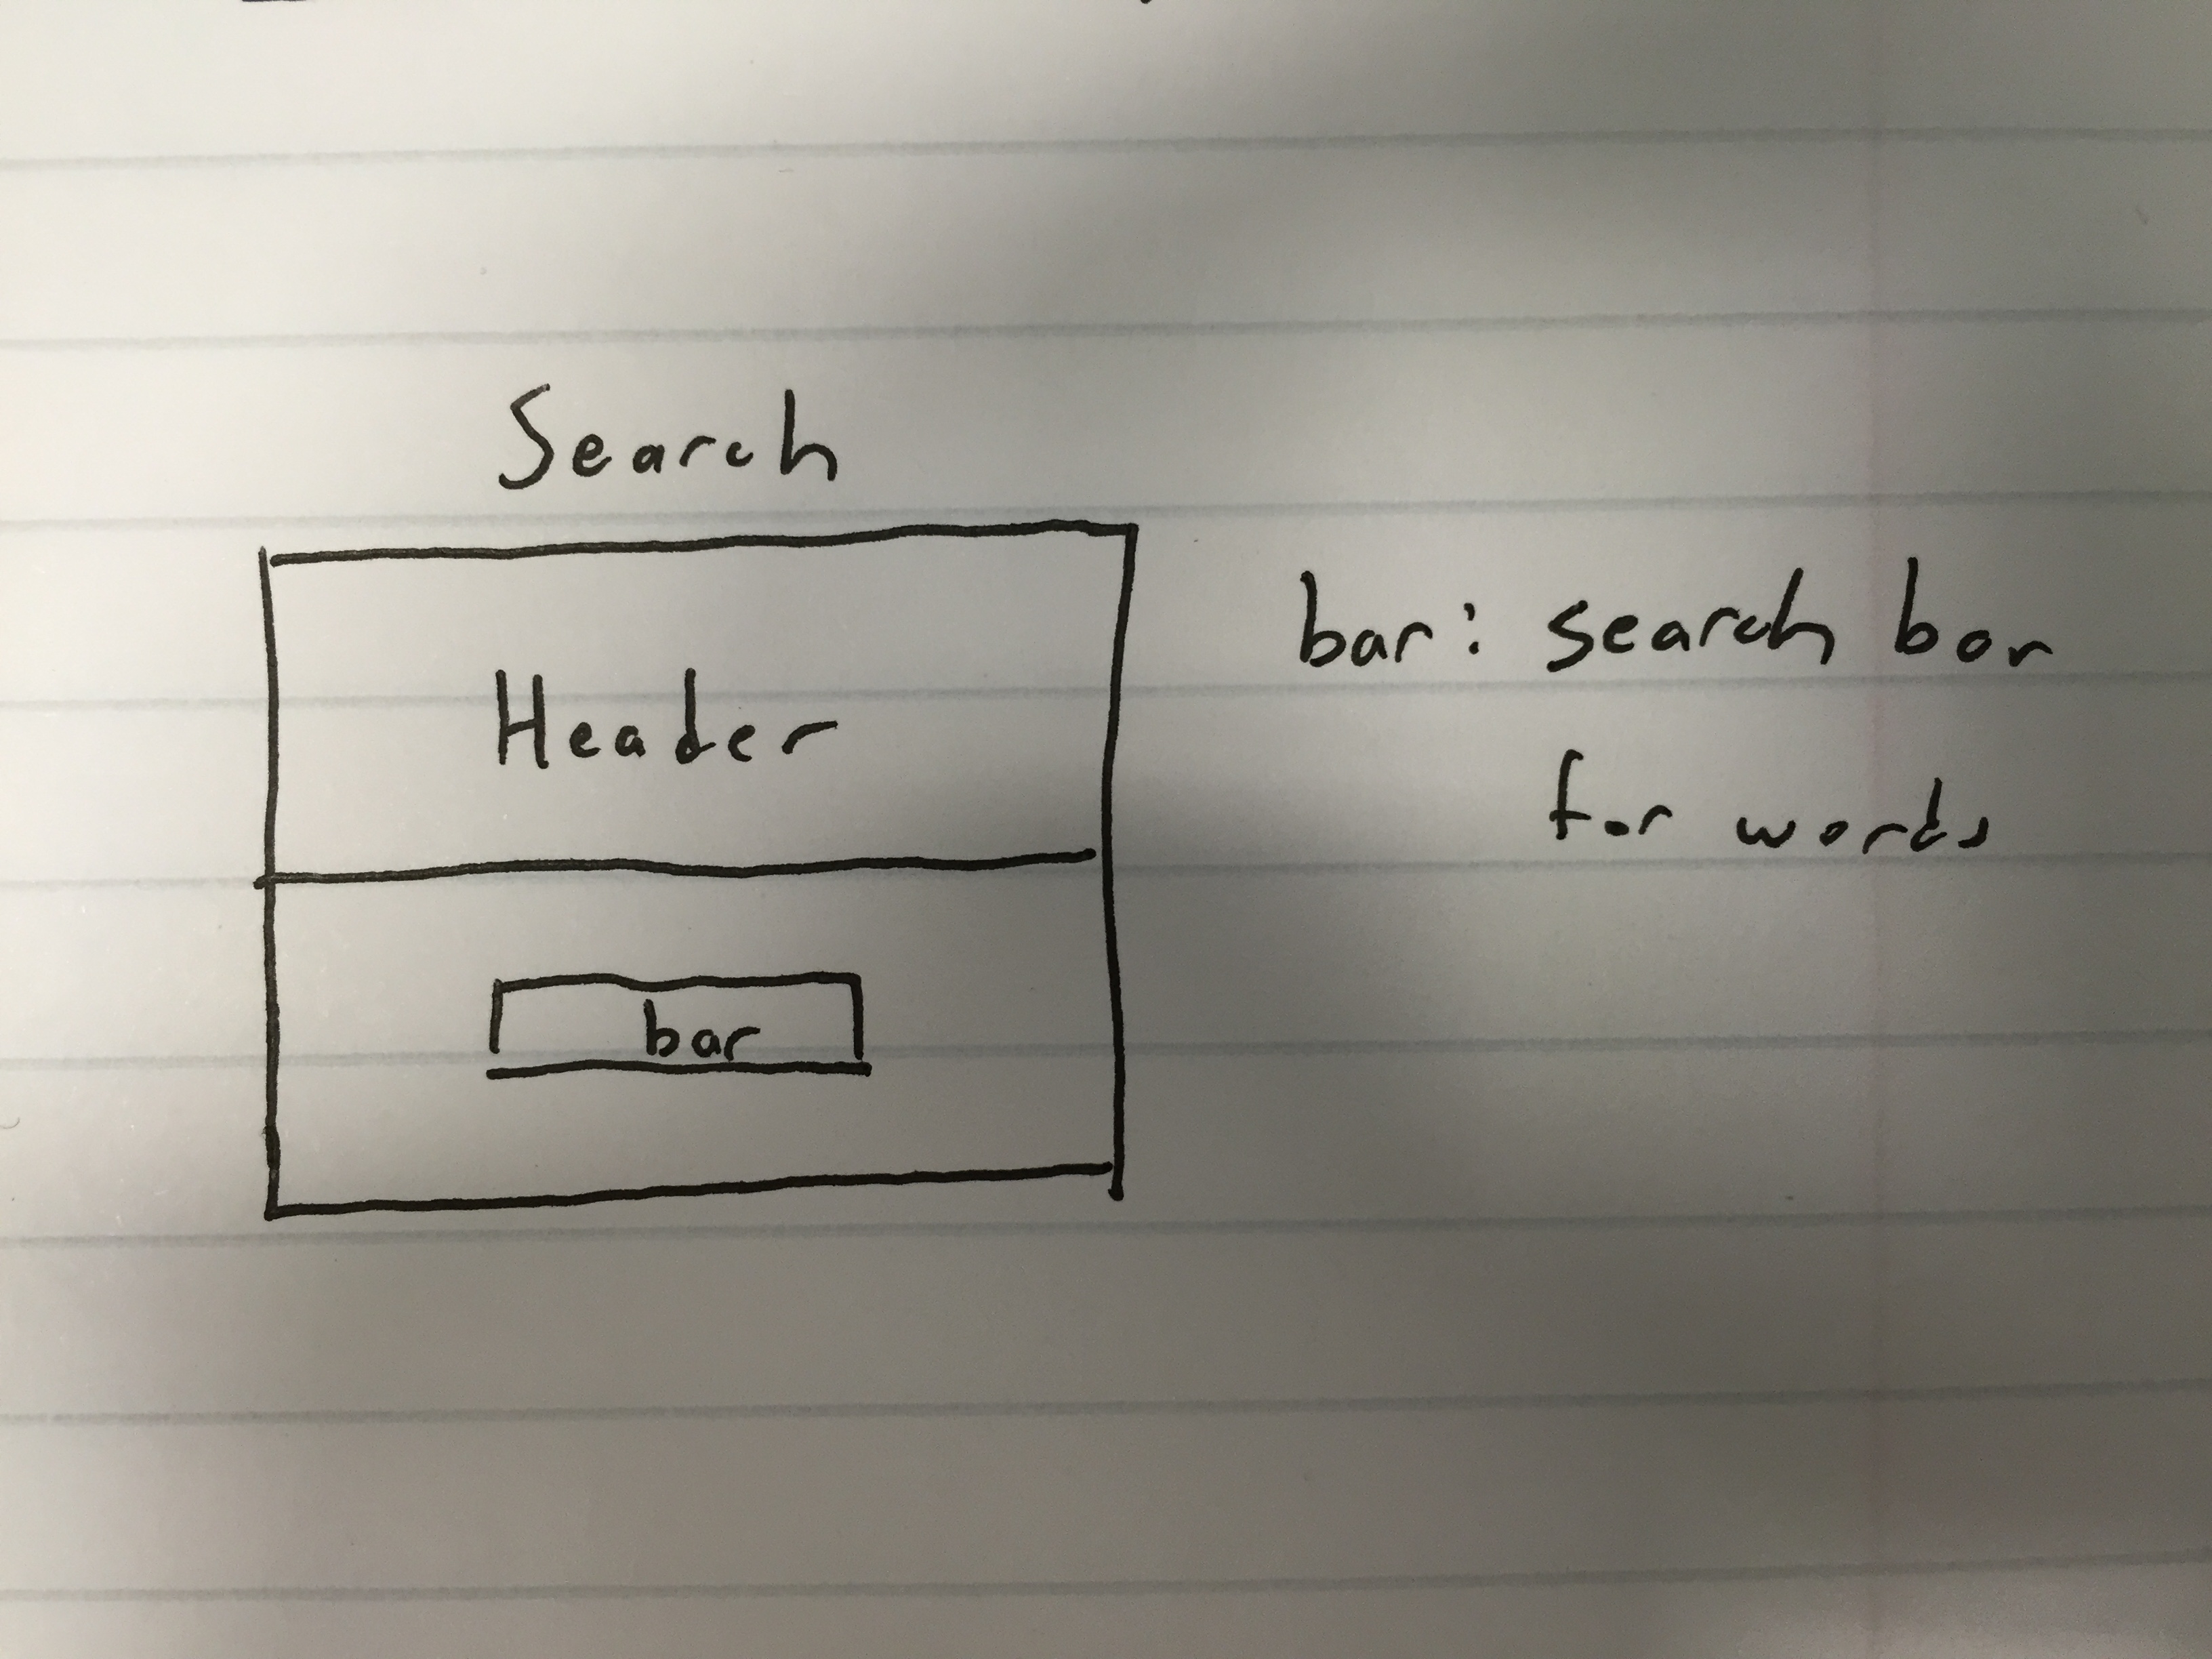 Search
Header
bar
bar: search bar
for words